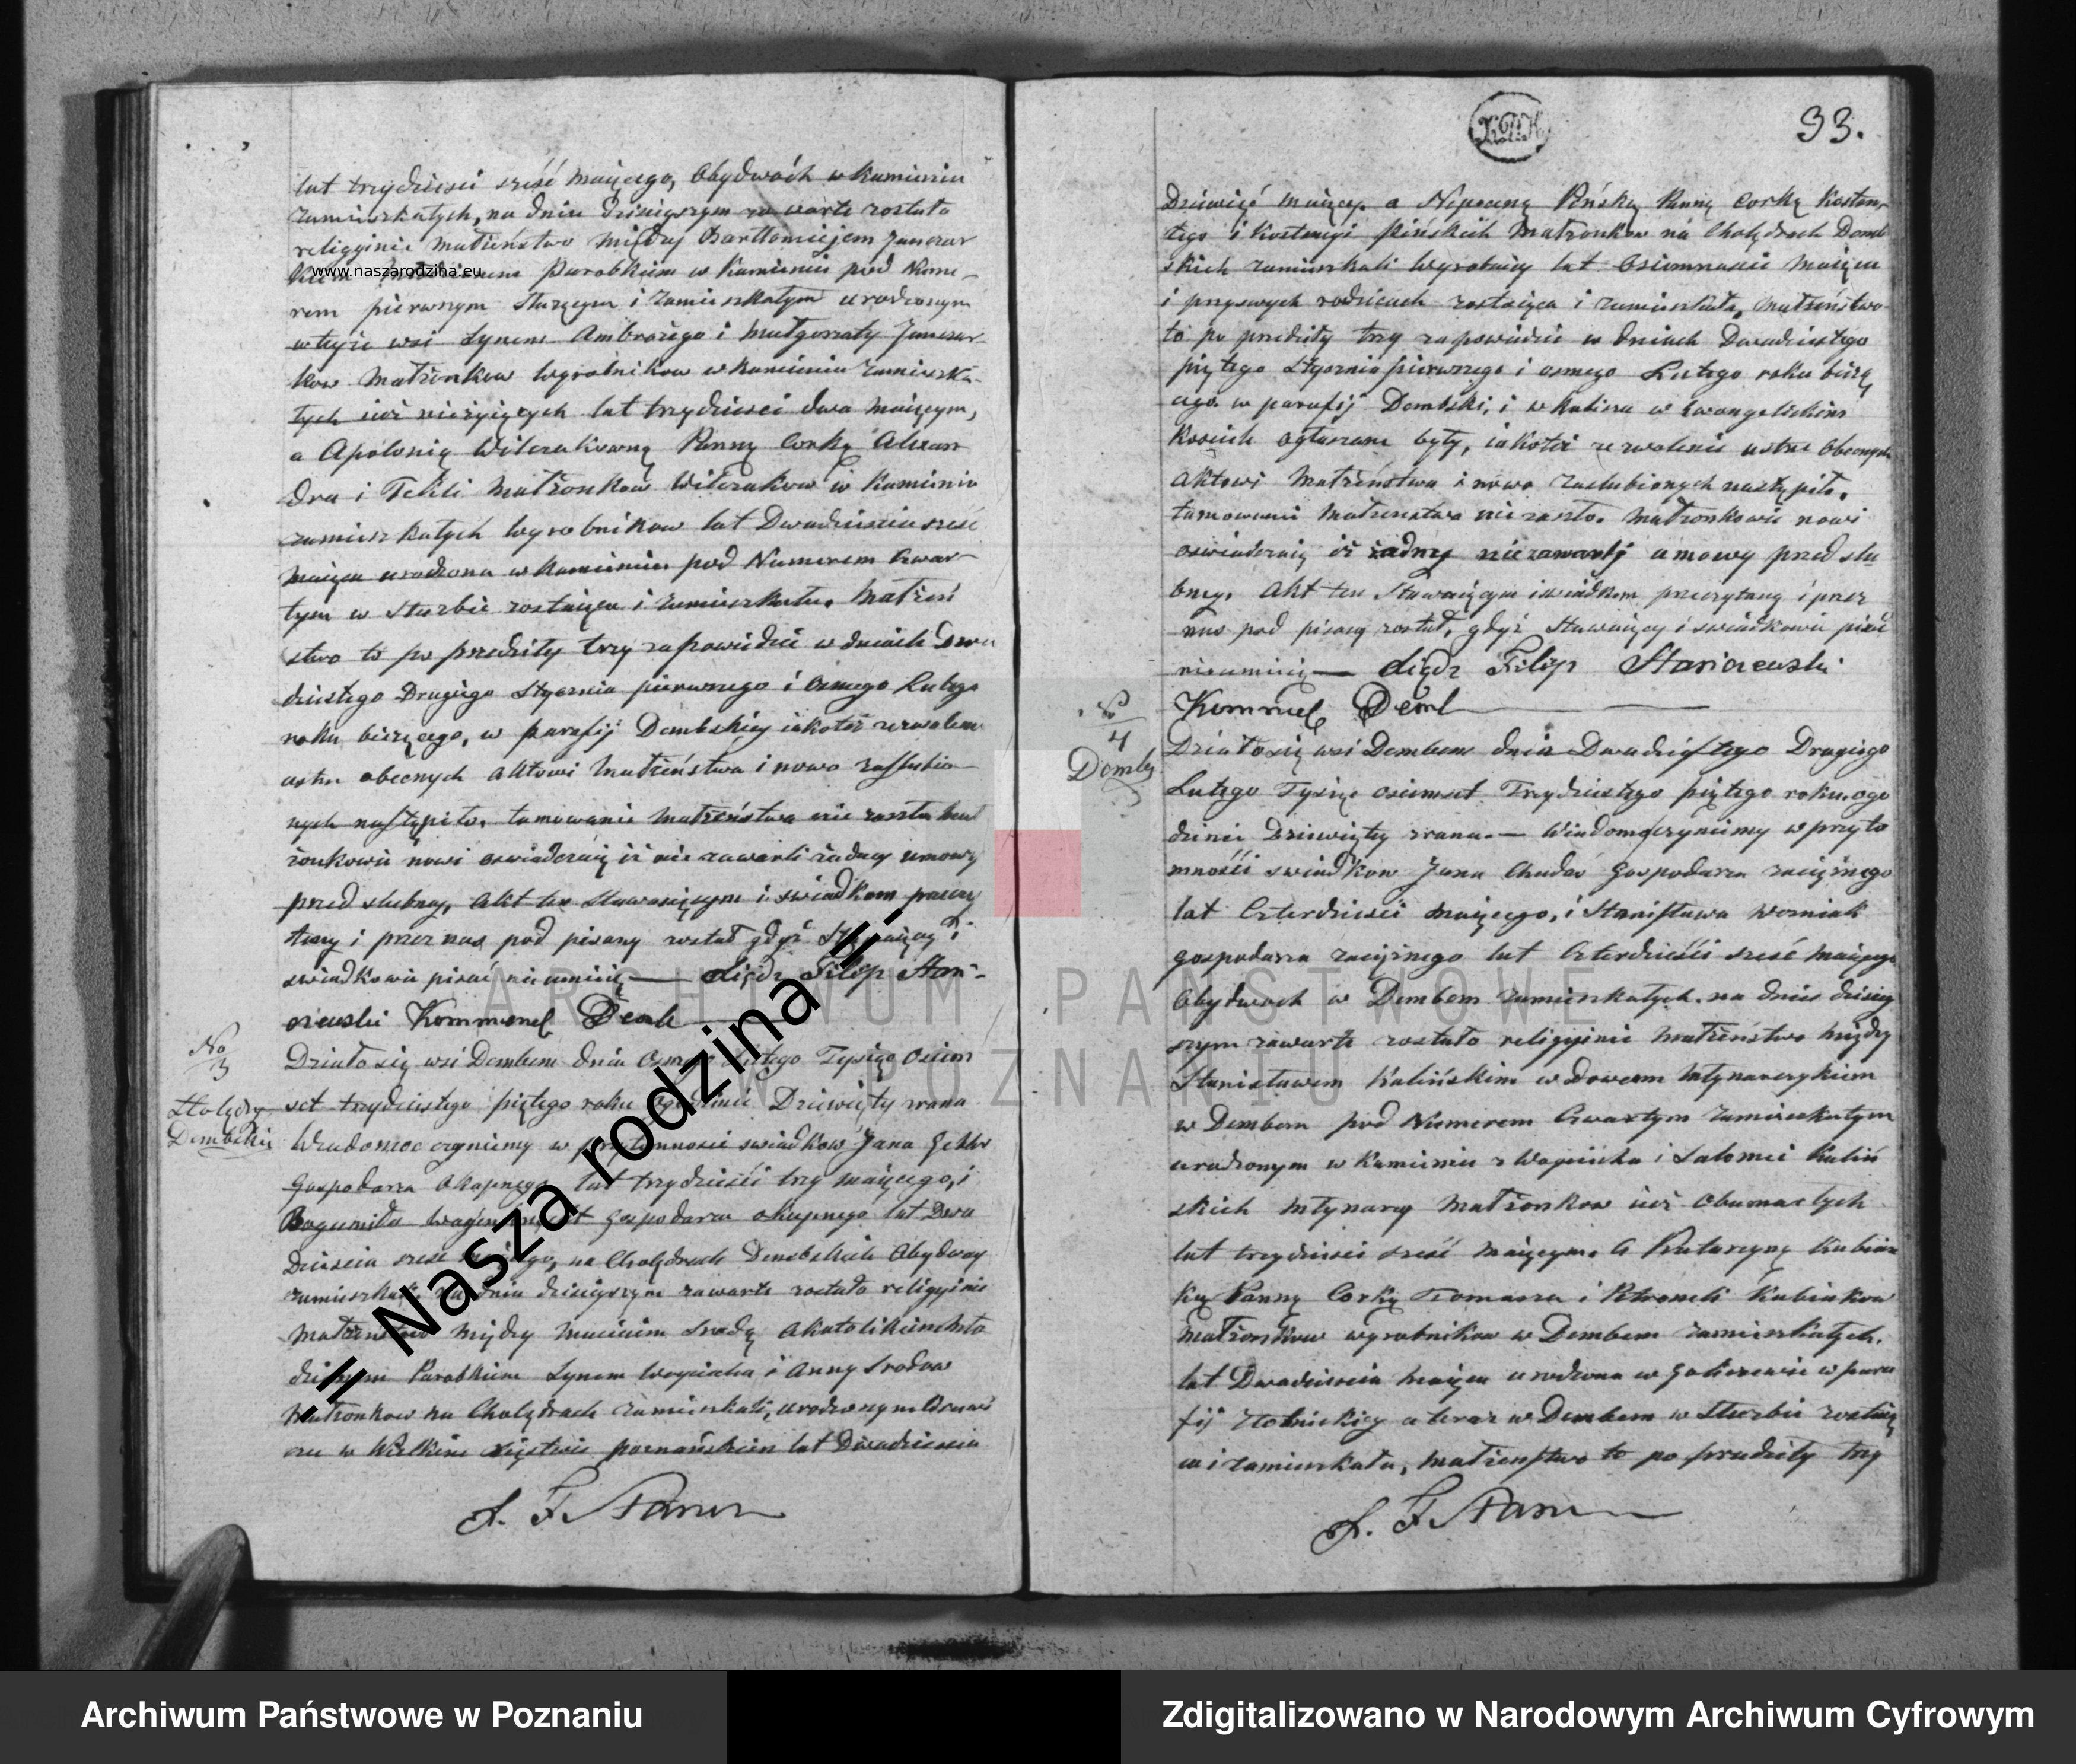 lat trzydzieści sześć maiącego, Obydwóch w Kamieniu
zamieszkałych, na dniu dzisieyszym zawarte zostało
religijnie małżeństwo między Bartłomiejem Janczar
kiem Parobkiem w Kamieniu pod Nume-
rem pierwszym służącym i zamieszkałym urodzonym
w teyże wsi synem Ambrożego i Małgorzaty Janczar-
kow Małżonkow wyrobnikow w Kamieniu zamieszka-
łych iuż nieżyiących lat trzydzieści dwa maiącym,
a Apolonią Wilczakowną Panną Corką Alexan
dra i Tekli Małżonkow Wilczakow w Kamieniu
zamieszkałych wyrobnikow lat Dwadzieścia sześć
maiąca urodzona w Kamieniu pod Numerem Czwar-
tym w służbie zostaiąca i zamieszkała. Małżeń
stwo to po przedziły trzy zapowiedzi w dniach Dwu
dziestego Drugiego Stycznia pierwszego i osmego Lutego
roku bieżącego, w parafij Dembskiey iakoteż zezwolenie
ustne obecnych Aktowi Małżeństwa i nowo zaslubio-
nych nastąpiło, tamowanie małżeństwa nie zaszło mał
żonkowie nowi oswiadczaią iż nie zawarli żadney umowy
przed slubney, Akt ten Stawaiącym i swiadkom przeczy
tany i przez nas pod pisany został gdyż Stawaiący i
swiadkowie pisać nie umieią — Xiądz Filip Stani-
szewski
No
3
Holędry
Dembskie
Działo się wsi Dembem dnia Osmego Lutego Tysiąc Osiem
set trzydziestego piątego roku ogodzinie Dziewiąty zrana
Wiadomo czyniemy w przytomności swiadkow Jana
Gospodarza Okupnego lat trzydzieści trzy maiącego, i
Bogumiła Gospodarza okupnego lat Dwa
dzieścia sześć maiącego, na Cholędrach Dembskich Obydway
zamieszkali, na dniu dzisieyszym zawarte zostało religyinie
Małżeństwo między Marcinem Srodą Akatolikiem Mło
dzianem Parobkiem synem Woyciecha i Anny Srodow
Małżonkow na Cholędrach zamieszkali, urodzonym
w Wielkim Xięstwie poznańskiem lat Dwadzieścia
X. F. Stanisz
33.
Dziewięć maiący a Panną Corką Konstan
tego i Konstancyi Pińskich Małżonkow na Cholędrach Demb
skich zamieszkali Wyrobnicy lat Osiemnaście maiąca
i przyswych rodzicach zostaiąca i zamieszkała, Małżeństwo
to po przedziły trzy zapowiedzie w dniach Dwudziestego
piątego Stycznia pierwszego i osmego Lutego roku bieżą
cego w parafij Dembski, i w Kaliszu w Ewangelickim
Koscile ogłaszane były, iakoteż zezwolenie ustne obecnych
Aktowi Małżeństwa i nowo zaslubionych nastąpiło.
tamowanie Małżeństwa nie zaszło. Małżonkowie nowi
oswiadczaią iż żadney niezawarły umowy przed slu
bney. Akt ten Stawaiącym i swiadkom przeczytany i przez
nas pod pisany został, gdyż Stawaiący i swiadkowie pisać
nieumieią — Xiądz Filip Staniszewski
No
4
Dembe
Działo się wsi Dembem dnia Dwudziestego Drugiego
Lutego Tysiąc osiemset Trzydziestego piątego roku. ogo
dzinie Dziewiąty zrana. — Wiadomo czyniemy w przyto
mności swiadkow Jana Chudaś Gospodarza zaciężnego
lat Czterdzieści maiącego, i Stanisława Wozniak
gospodarza zaciężnego lat Czterdzieści sześć maiącego
Obydwoch w Dembem zamieszkałych, na dniu dzisiey
szym zawarte zostało religyinie małżeństwo między
Stanisławem Kalińskim wdowcem młynarczykiem
w Dembem pod Numerem Czwartym zamieszkałym
urodzonym w Kamieniu z Woyciecha i Salomei Kaliń
skich młynarzy małżonkow iuż obumarłych
lat trzydzieści sześć maiącym. A Katarzyną Kubiac
ką Panną Corką Tomasza i Petroneli Kubiakow
małżonkow wyrobnikow w Dembem zamieszkałych.
lat Dwadzieścia maiąca urodzona w w para
fij a teraz w Dembem w Służbie zostaią
ca i zamieszkała, małżeństwo to po przedziły trzy
X. F. Stanisz
www.naszarodzina.eu
.:: Nasza rodzina ::.
ARCHIWUM PAŃSTWOWE
W POZNANIU
Archiwum Państwowe w Poznaniu
Zdigitalizowano w Narodowym Archiwum Cyfrowym